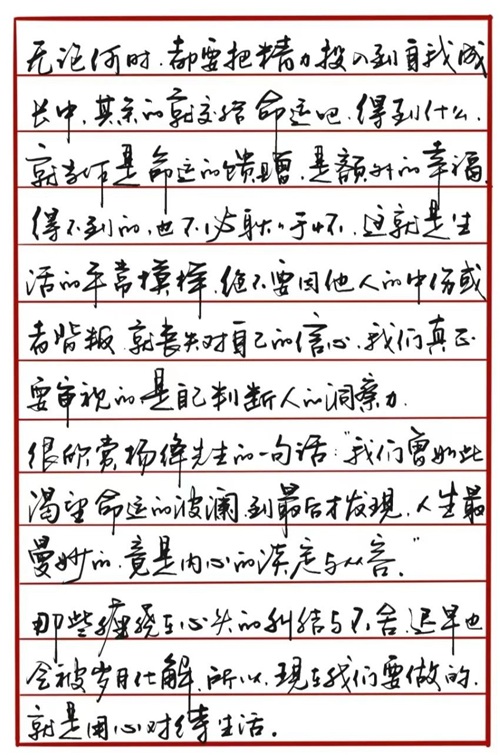 无论何时，都要把精力投入到自我成
长中，其余的就交给命运吧，得到什么，
就当作是命运的馈赠，是额外的幸福，
得不到的，也不必耿耿于怀，这就是生
活的平常模样，绝不要因他人的中伤或
者背叛，就丧失对自己的信心，我们真正
要审视的是自己判断人的洞察力.
很欣赏杨绛先生的一句话："我们曾如此
渴望命运的波澜，到最后才发现，人生最
曼妙的，竟是内心的淡定与从容。"
那些缠绕在心头的纠结与不舍，迟早也
会被岁月化解，所以，现在我们要做的，
就是用心对待生活。